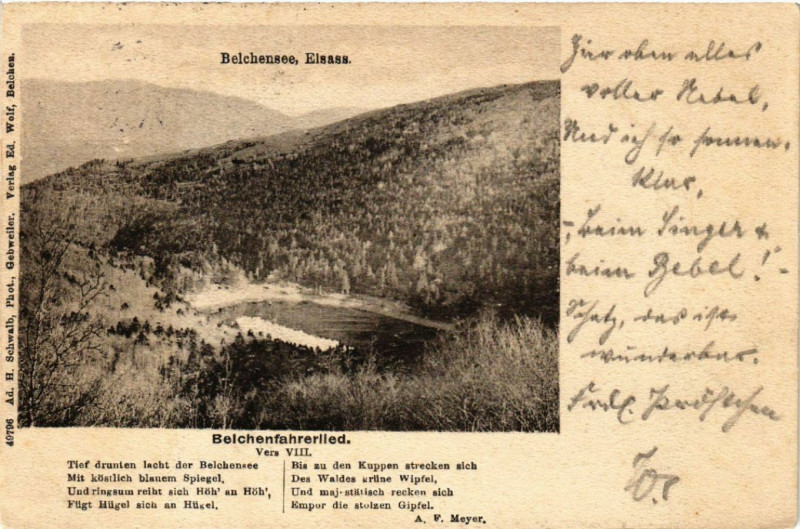 Belchensee, Elsass.
49796 Ad. H. Schwalb, Phot., Gebweiler, Verlag Ed. Wolf, Belchen.
Hier oben alles
voller Nebel,
Und ich so sonnen-
klar,
beim Singer &
beim Bebel!
Schatz, das ist
wunderbar.
Belchenfahrerlied.
Vers VIII.
Tief drunten lacht der Belchensee
Mit köstlich blauem Spiegel,
Und ringsum reiht sich Höh' an Höh',
Fügt Hügel sich an Hügel.
Bis zu den Kuppen strecken sich
Des Waldes grüne Wipfel,
Und majestätisch recken sich
Empor die stolzen Gipfel.
A. F. Meyer.